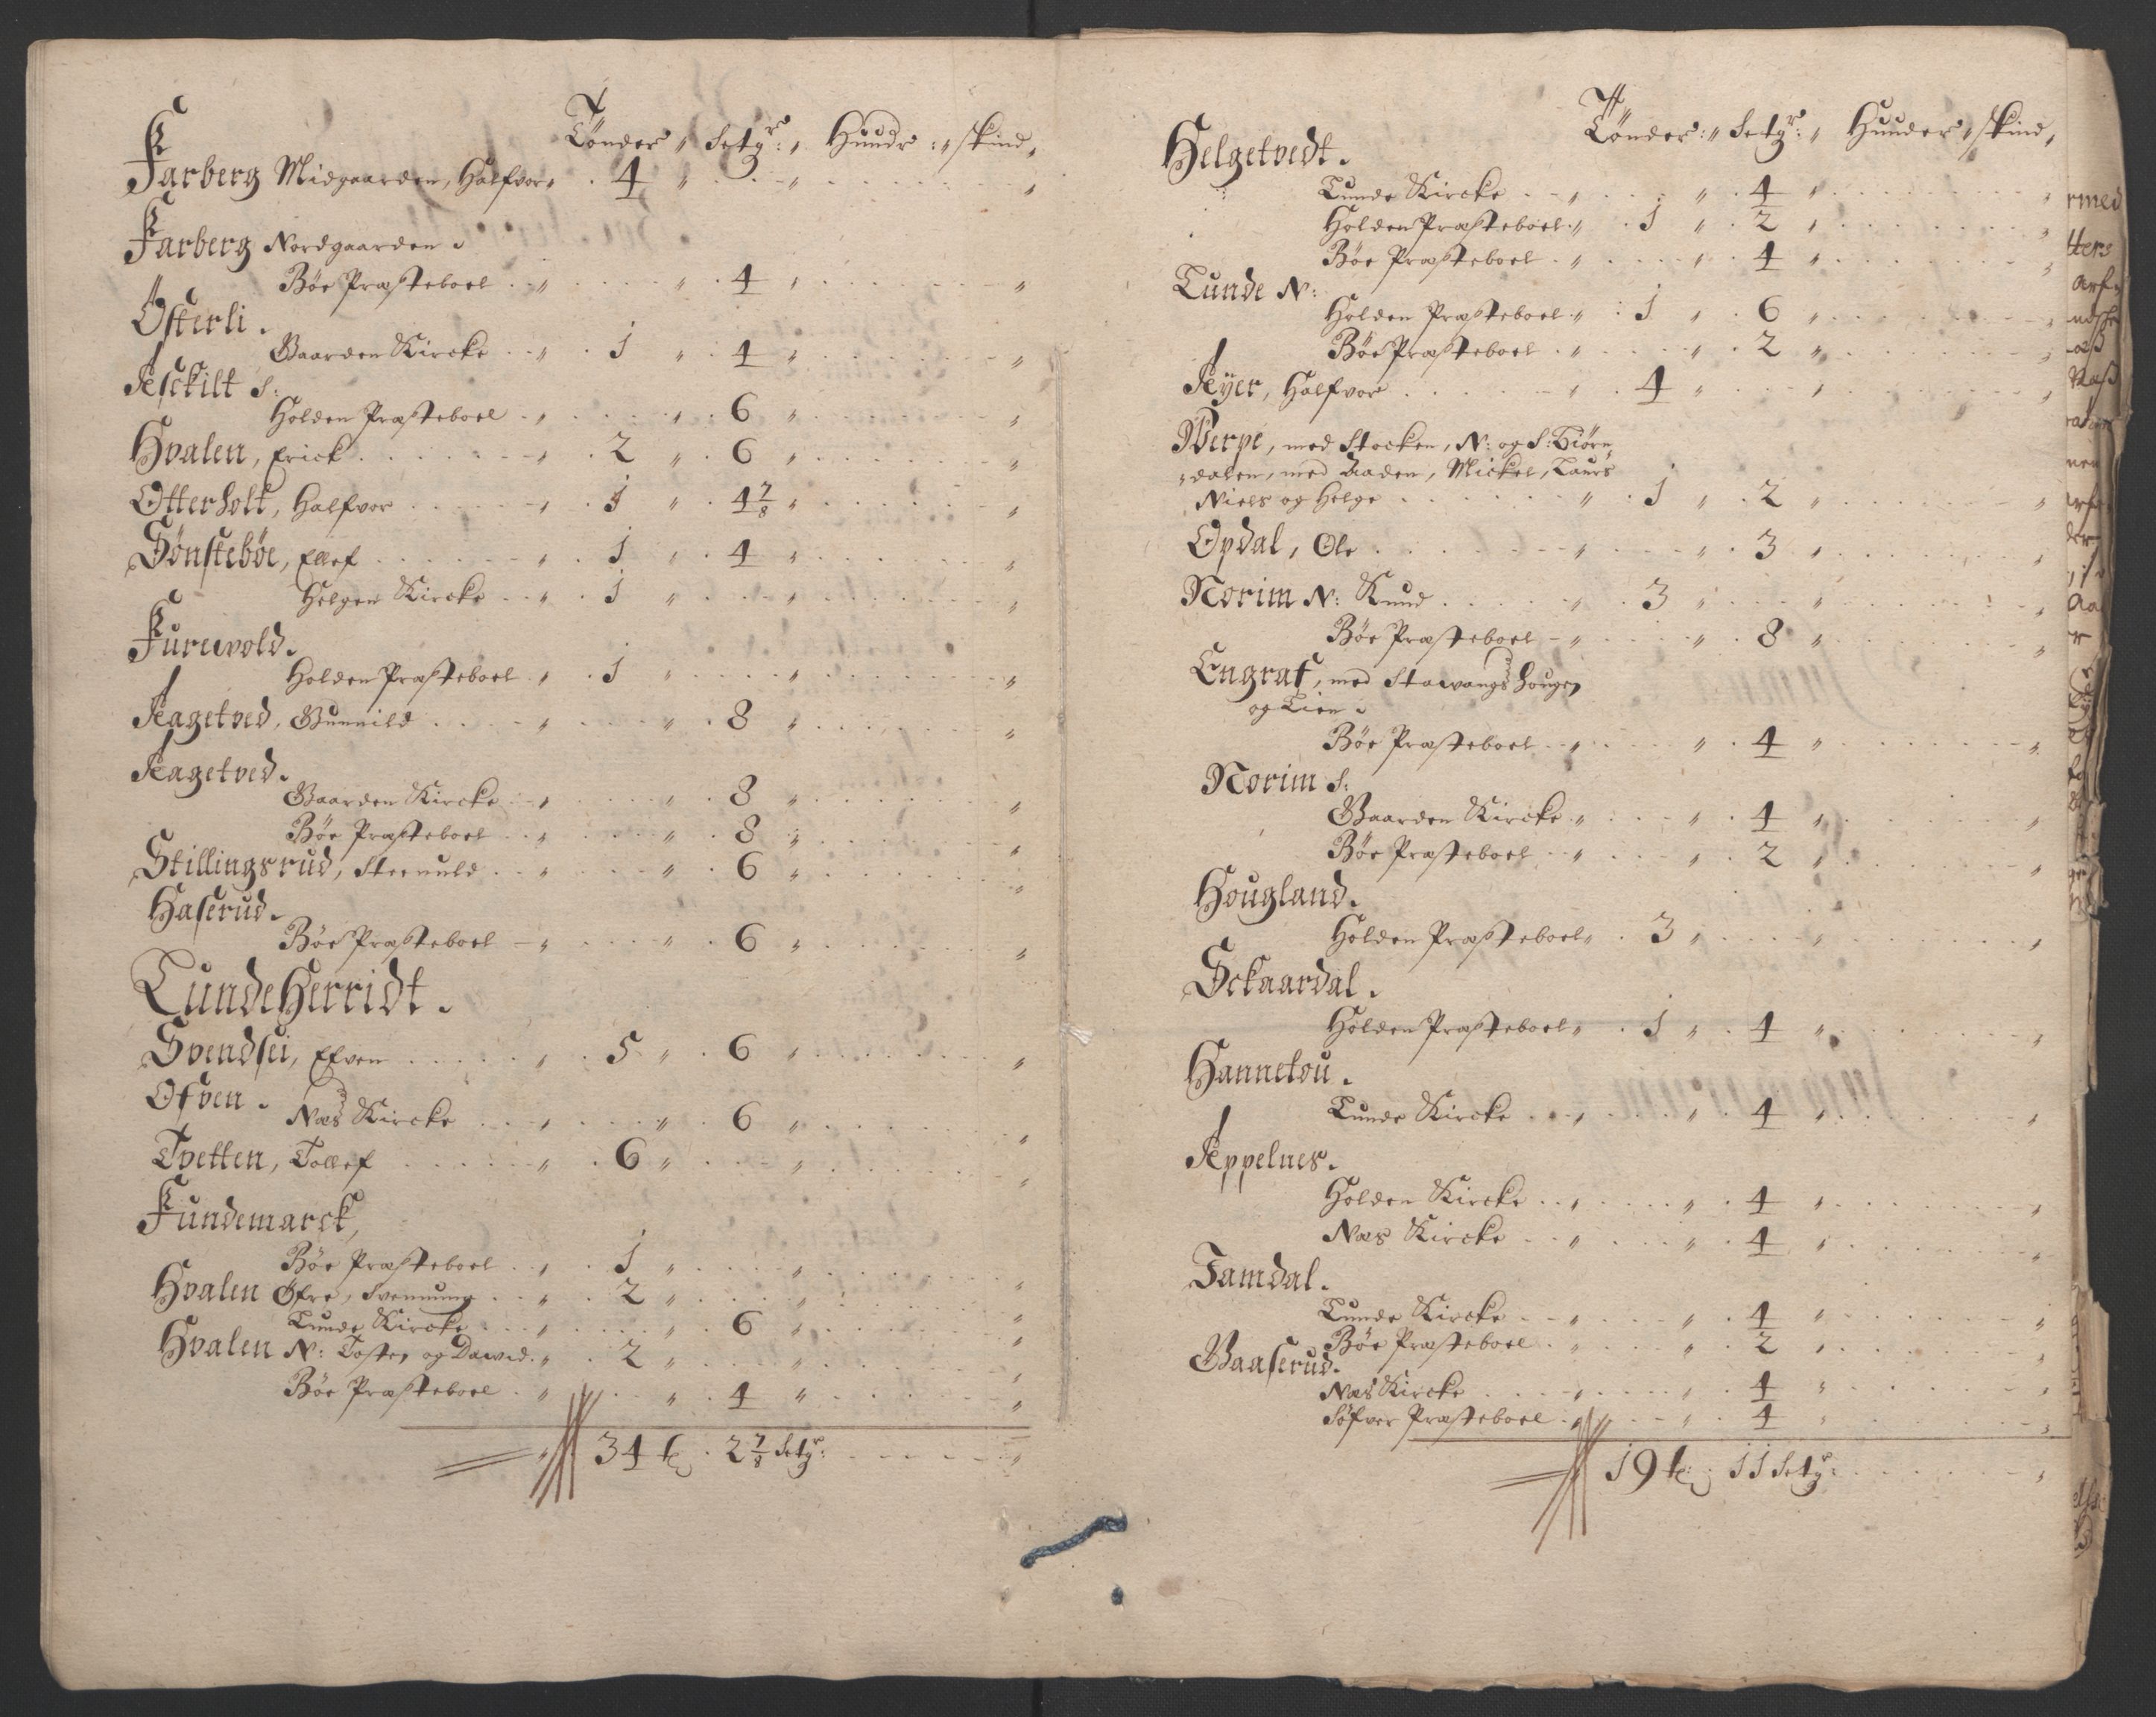 Tønder „ Setgr: „ Hunder: „ skind „
Farberg Midgaarden, Halfvor „ . 4 „ . . . „ . . . „
Farberg Nordgaarden .
Bøe Præsteboel . . „ . . . „ . 4 „ . . . „
Østerli .
Gaarden Kircke . . „ . 1 „ . 4 „ . . . „
Asckilt S:
Holden Præsteboel . „ . . . „ . 6 „ . . . „
Hvalen, Erick . . . „ . 2 „ . 6 „ . . . „
Otterholt, Halfvor . . . „ . 1 „ . 4 7/8 „ . . . „
Sønstebøe, Ellef . . . „ . 1 „ . 4 „ . . . „
Helgen Kircke . . „ . 1 „ . . . „ . . . „
Furuvold .
Holden Præsteboel . „ . 1 „ . . . „ . . . „
Aagetved, Gunnild . . . „ . . . „ . 8 „ . . . „
Aagetved .
Gaarden Kircke . . „ . . . „ . 8 „ . . . „
Bøe Præsteboel . . „ . . . „ . 8 „ . . . „
Stillingsrud, Steenuld . . „ . . . „ . 6 „ . . . „
Haserud .
Bøe Præsteboel - „ . . . „ . 6 „ . . . „
Lunde Herridt .
Svendsei, Efven . . . „ . 5 „ . 6 „ . . . „
Ofven .
Næs Kircke . . . „ . . . „ . 6 „ . . . „
Tvetten, Tollef . . . „ . 6 „ . . . „ . . . „
Fundemarck,
Bøe Præsteboel . . „ . 1 „ . . . „ . . . „
Hvalen Øfre, Svennung . . „ . 2 „ . . . „ . . . „
Lunde Kircke . . . „ . . . „ . 6 „ . . . „
Hvalen N: Tosten og Dawid . „ . 2 „ . . . „ . . . „
Bøe Præsteboel . „ . . . „ . 4 „ . . . „
34 t . 2 7/8 Setgr: . . . „
Tønder: „ Setgr: „ Hunder „ skind „
Helgetvedt .
Lunde Kircke . . . „ . . . „ . 4 „ . . . „
Holden Præsteboel . „ . 1 „ . 2 „ . . . „
Bøe Præsteboel . „ . . . „ . 4 „ . . . „
Lunde N:
Holden Præsteboel . „ . 1 „ . 6 „ . . . „
Bøe Præsteboel . „ . . . „ . 2 „ . . . „
Aÿer, Halfvor . . . „ . 4 „ . . . „ . . . „
Werpe, med Stocken, N: og S: Biørn
„dalen, med Aaden, Mickel, Laurs
Niels og Helge . . . „ . 1 „ . 2 „ . . . „
Opdal, Ole . . . „ . . . „ . 3 „ . . . „
Norim N: Knud . . . „ . 3 „ . . . „ . . . „
Bøe Præsteboel - „ . . . „ . 8 „ . . . „
Engraf, med Stawangs Hougen
og Lien .
Bøe Præsteboel . . „ . . . „ . 4 „ . . . „
Norim S:
Gaarden Kircke . „ . . . „ . 4 „ . . . „
Bøe Præsteboel . . „ . . . „ . 2 „ . . . „
Hougland .
Holden Præsteboel „ . 3 „ . . . „ . . . „
Sckaardal .
Holden Præsteboel „ . 1 „ . 4 „ . . . „
Hannetou .
Lunde Kircke . . „ . . . „ . 4 „ . . . „
Appelnes .
Holden Kircke . . „ . . . „ . 4 „ . . . „
Næs Kircke . . „ . . . „ . 4 „ . . . „
Tamdal .
Lunde Kircke . . „ . . . „ . 4 „ . . . „
Bøe Præsteboel . „ . . . „ . 2 „ . . . „
Gaaserud .
Næs Kircke . . . „ . . . „ . 4 „ . . . „
Søfver Præsteboel . „ . . . „ . 4 „ . . . „
19 t: . 11 Setgr: . . . „